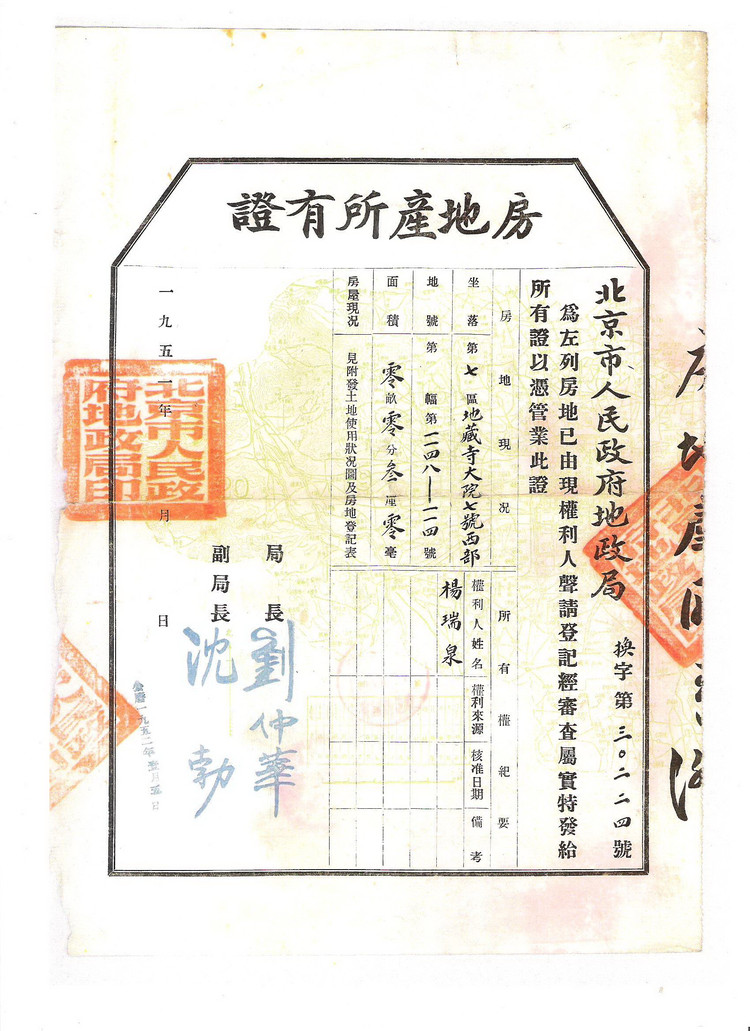 房地產所有證
北京市人民政府地政局
換字第三〇二二四號
為左列房地已由現權利人聲請登記經審查屬實特發給
所有證以憑管業此證
房地現況
坐落 第七區地藏寺大院七號西部
地號 第 幅第二四八—一一四號
面積 零畝零分叁厘零毫
房屋現況 見附發土地使用狀況圖及房地登記表
所有權紀要
權利人姓名 權利來源 核准日期 備考
楊瑞泉
局長 劉仲華
副局長 沈勃
一九五一年 月 日
北京市人民政
府地政局印